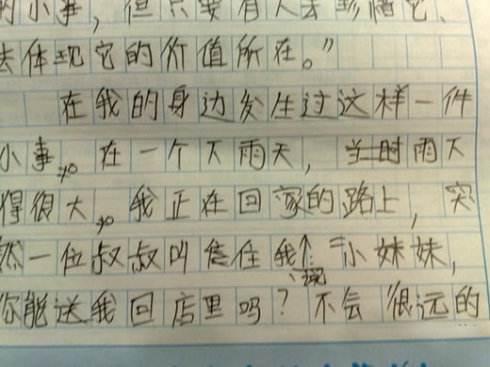 的小事，但只要有人去
去体现它的价值所在。”
在我的身边发生过这样一件
小事，在一个下雨天，当时雨下
得很大，我正在回家的路上，突
然一位叔叔叫住我说：“小妹妹，
你能送我回店里吗？不会很远的